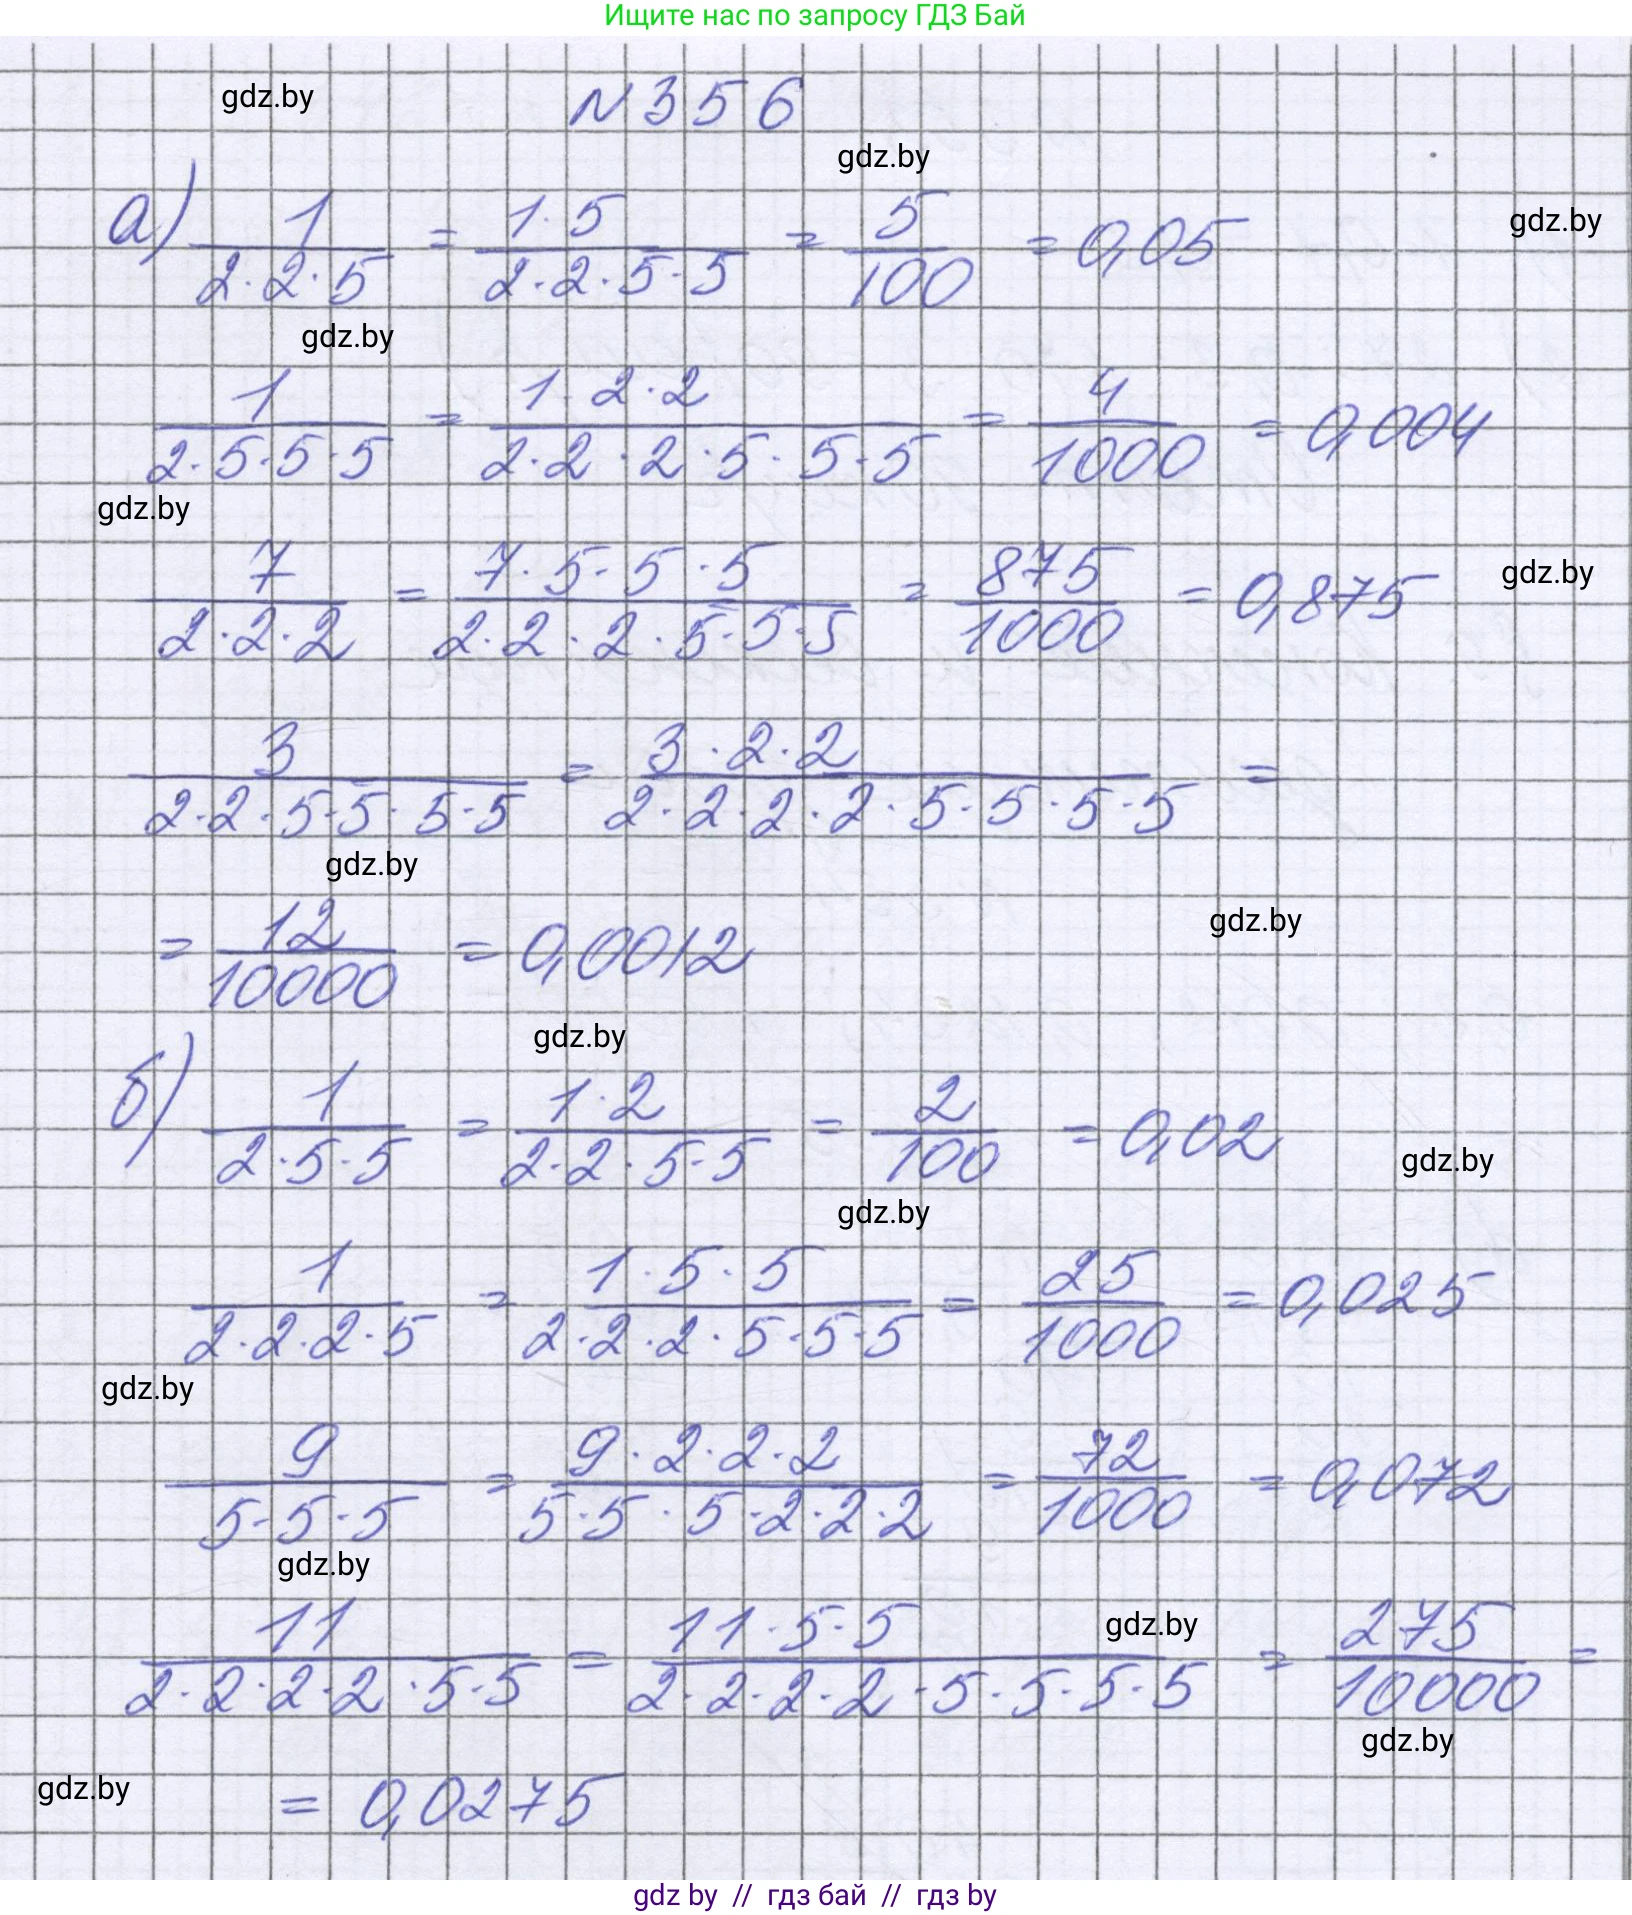 Ищите нас по запросу ГДЗ Бай
gdz.by
N 356
gdz.by
gdz.by
а) 1/(2·2·5) = (1·5)/(2·2·5·5) = 5/100 = 0,05
gdz.by
1/(2·5·5·5) = (1·2·2)/(2·2·2·5·5·5) = 4/1000 = 0,004
gdz.by
gdz.by
7/(2·2·2) = (7·5·5·5)/(2·2·2·5·5·5) = 875/1000 = 0,875
3/(2·2·5·5·5·5) = (3·2·2)/(2·2·2·2·5·5·5·5) =
gdz.by
gdz.by
= 12/10000 = 0,0012
gdz.by
б) 1/(2·5·5) = (1·2)/(2·2·5·5) = 2/100 = 0,02
gdz.by
gdz.by
1/(2·2·2·5) = (1·5·5)/(2·2·2·5·5·5) = 25/1000 = 0,025
gdz.by
9/(5·5·5) = (9·2·2·2)/(5·5·5·2·2·2) = 72/1000 = 0,072
gdz.by
gdz.by
11/(2·2·2·2·5·5) = (11·5·5)/(2·2·2·2·5·5·5·5) = 275/10000 =
gdz.by
gdz.by
= 0,0275
gdz by // гдз бай // гдз by